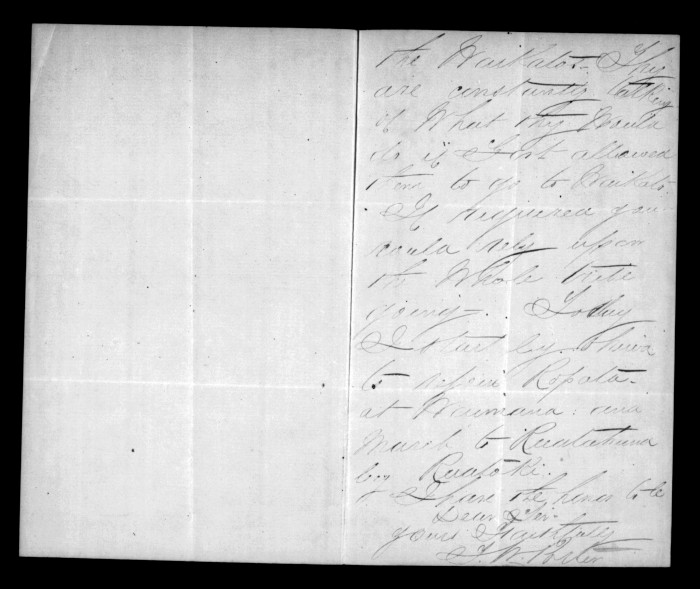 the Waikatos. They
are constantly talking
of What they Would
do if Govt allowed
them to go to Waikato.
If required you
could rely upon
the Whole tribe
going. Today
I start by Ohiwa
to rejoin Ropata.
at Waimana: and
March to Ruatahuna
by Ruatoki.
I have the honor to be
Dear Sir
yours Faithfully
T. W. Porter